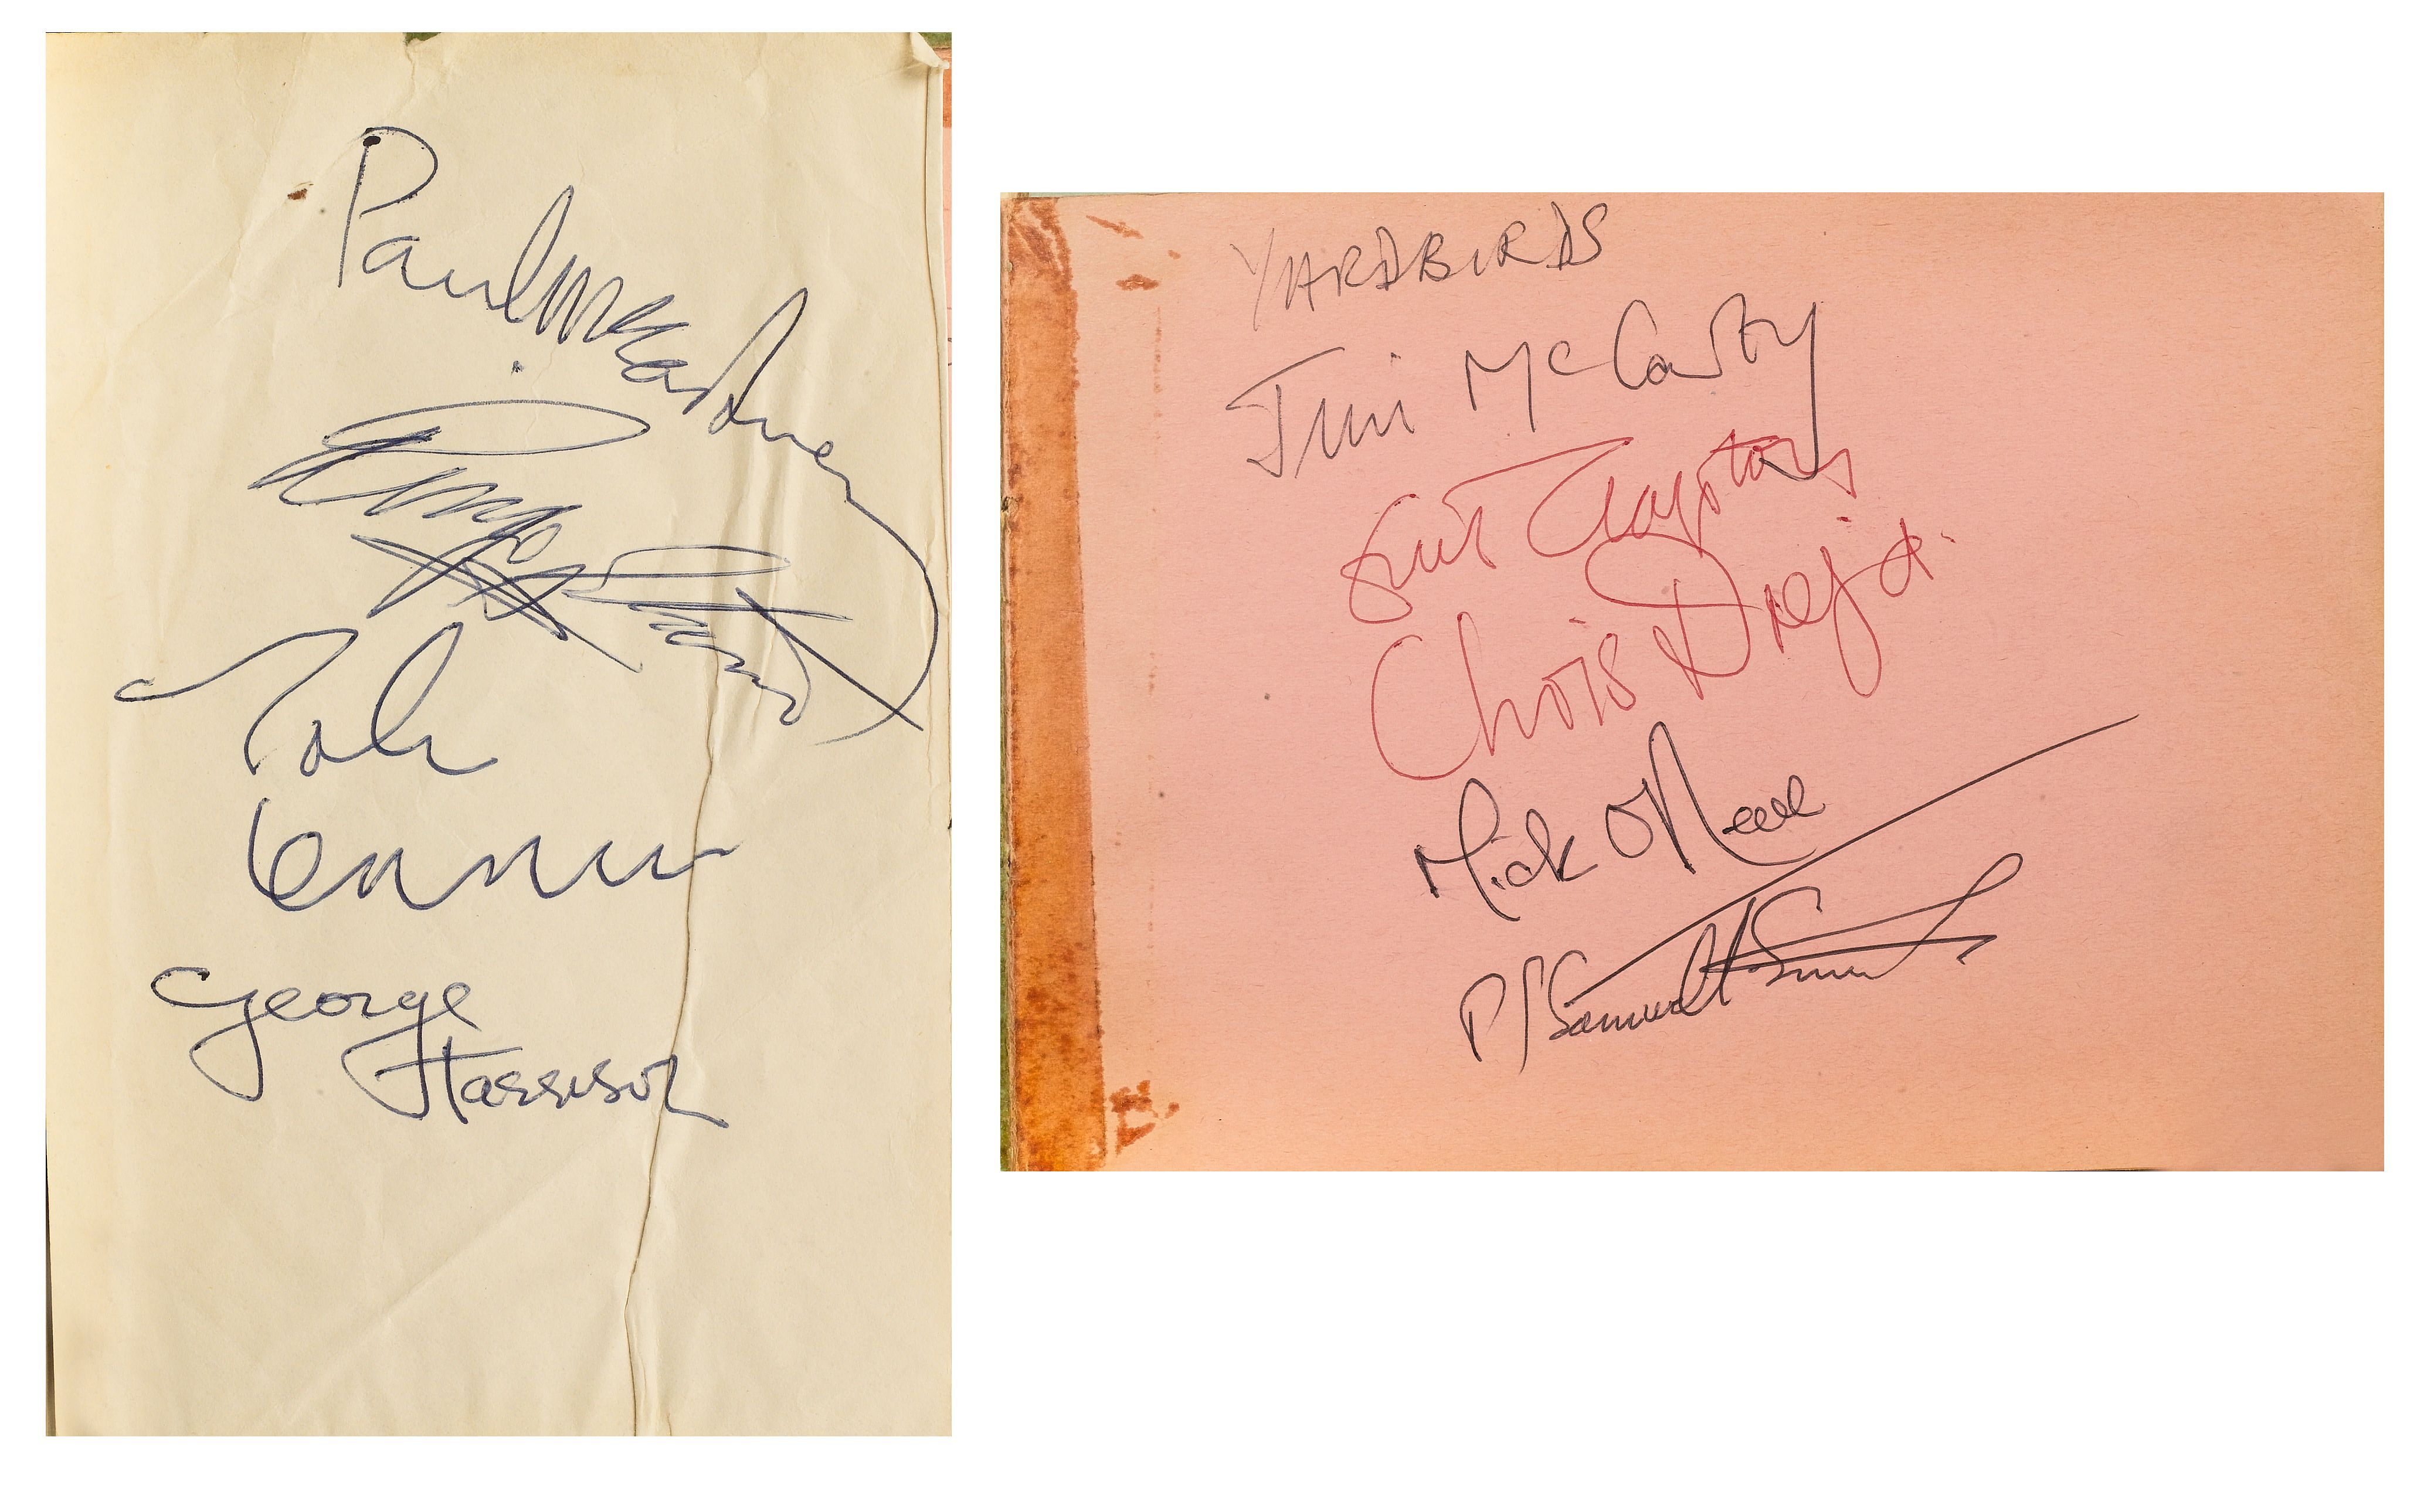 Paul McCartney
Ringo Starr
John
Lennon
George
Harrison
YARDBIRDS
Jim McCarty
Eric Clapton
Chris Dreja.
Mick O'Neill
P Samwell Smith